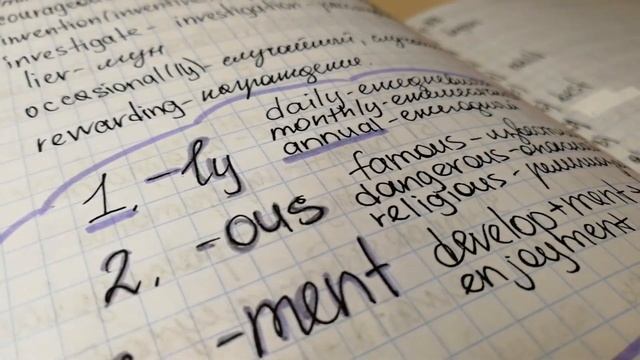 courageous
invention/invent
investigate - investigation
lier - лгун
occasional(ly) - случайный, случ
rewarding - награждение.
1. -ly
daily - ежедневн
monthly - ежемес
annual - ежегодный
2. -ous
famous - извест
dangerous - опасн
religious - религи
-ment
develop + ment
enjoyment